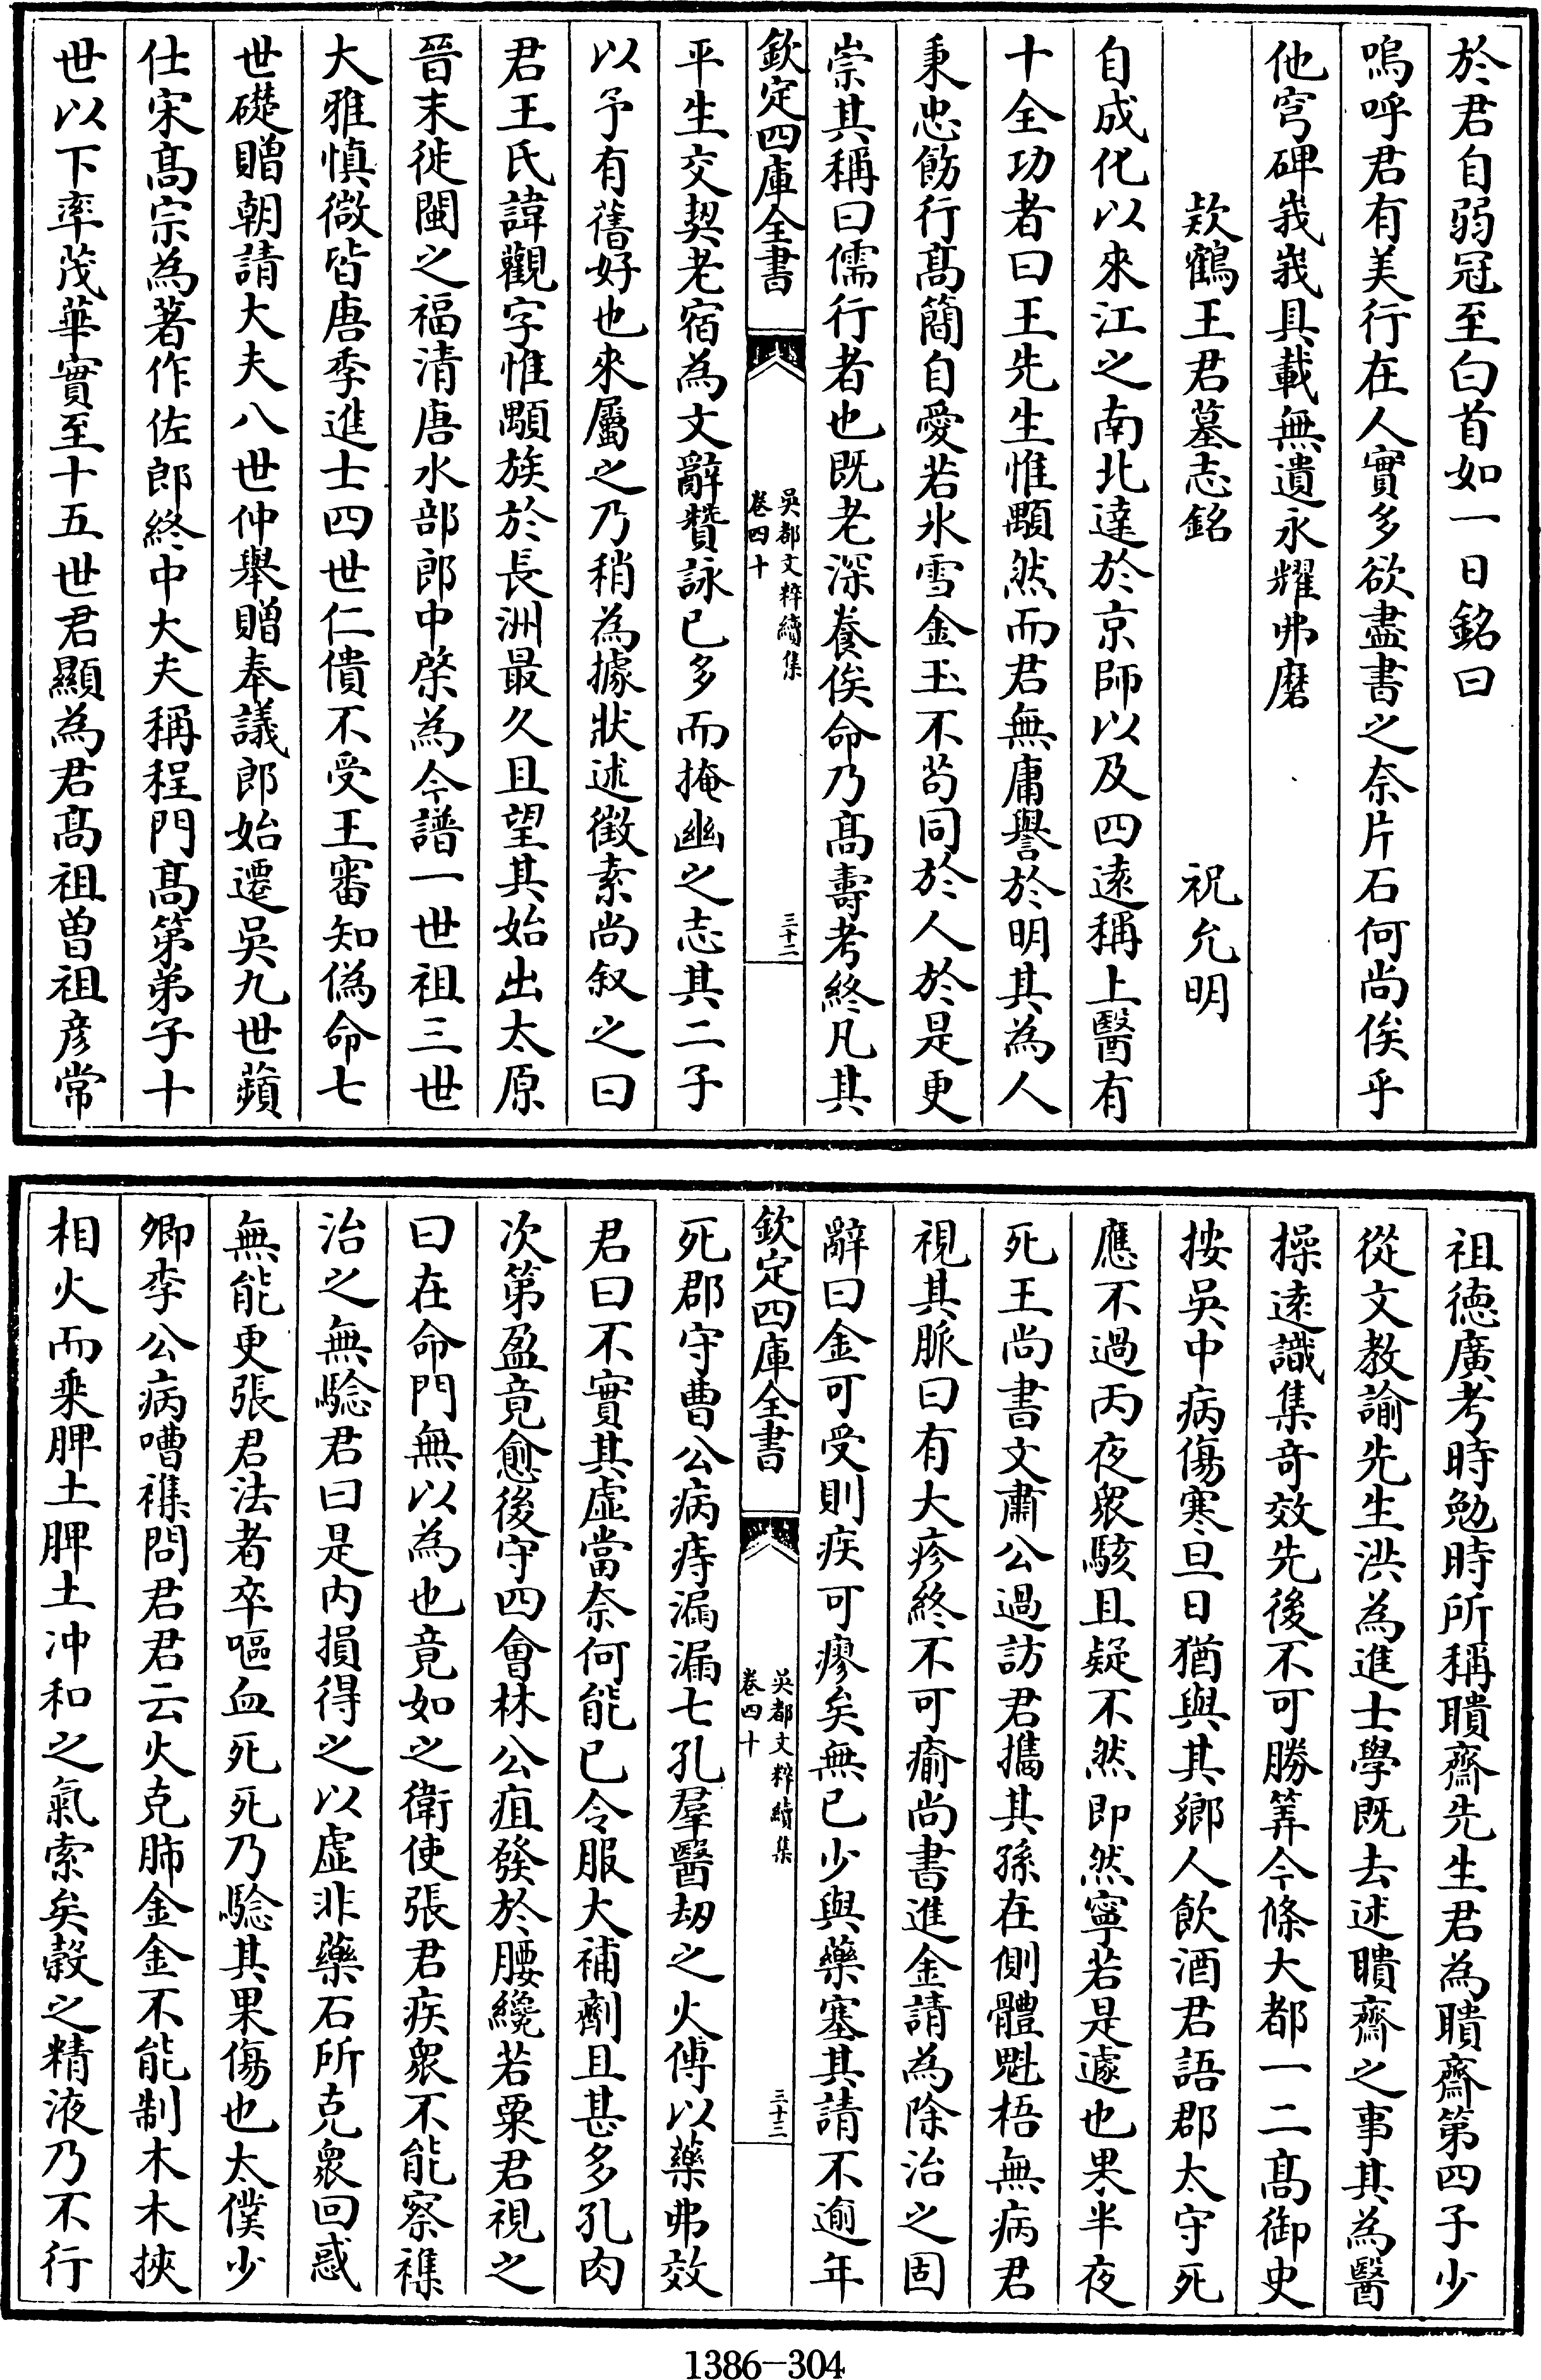 於君自弱冠至白首如一日銘曰
嗚呼君有美行在人實多欲盡書之奈片石何尚俟乎
他穹碑峩峩具載無遺永耀弗磨
欵鶴王君墓志銘　祝允明
自成化以來江之南北達於京師以及四遠稱上醫有
十全功者曰王先生惟顒然而君無庸譽於明其為人
秉忠飭行髙簡自愛若氷雪金玉不茍同於人於是更
崇其稱曰儒行者也既老深養俟命乃髙壽考終凡其
欽定四庫全書
吳都文粹續集
卷四十
三十二
平生交契老宿為文辭贊詠已多而掩幽之志其二子
以予有舊好也來屬之乃稍為據狀述徵索尚叙之曰
君王氏諱觀字惟顒族於長洲最久且望其始出太原
晉末徙閩之福清唐水部郎中棨為今譜一世祖三世
大雅慎微皆唐季進士四世仁僓不受王審知偽命七
世礎贈朝請大夫八世仲舉贈奉議郎始遷吳九世蘋
仕宋髙宗為著作佐郎終中大夫稱程門髙第弟子十
世以下率茂華實至十五世君顯為君髙祖曽祖彦常
祖德廣考時勉時所稱瞶齋先生君為瞶齋第四子少
從文教諭先生洪為進士學既去述瞶齋之事其為醫
操遠識集竒效先後不可勝筭今條大都一二髙御史
按吳中病傷寒旦日猶與其鄉人飲酒君語郡太守死
應不過丙夜衆駭且疑不然即然寧若是遽也果半夜
死王尚書文肅公過訪君擕其孫在側體魁梧無病君
視其脈曰有大疹終不可瘉尚書進金請為除治之固
辭曰金可受則疾可瘳矣無已少與藥塞其請不逾年
欽定四庫全書
吳都文粹續集
卷四十
三十三
死郡守曹公病痔漏漏七孔羣醫刼之火傅以藥弗效
君曰不實其虛當奈何能已令服大補劑且甚多孔肉
次第盈竟愈後守四會林公疽發於腰纔若粟君視之
曰在命門無以為也竟如之衛使張君疾衆不能察襍
治之無騐君曰是内損得之以虛非藥石所克衆回惑
無能更張君法者卒嘔血死死乃騐其果傷也太僕少
卿李公病嘈襍問君君云火克肺金金不能制木木挾
相火而乘脾土脾土冲和之氣索矣榖之精液乃不行
1386-304